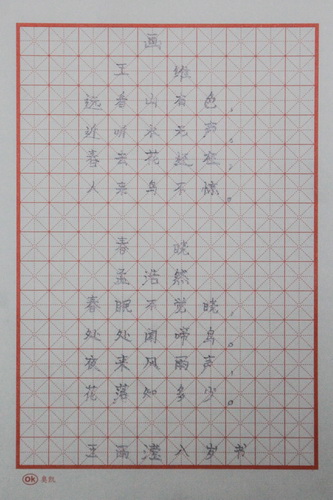 画
王 维
远看山有色，
近听水无声。
春去花还在，
人来鸟不惊。
春 晓
孟浩然
春眠不觉晓，
处处闻啼鸟。
夜来风雨声，
花落知多少。
王雨滢八岁书
OK